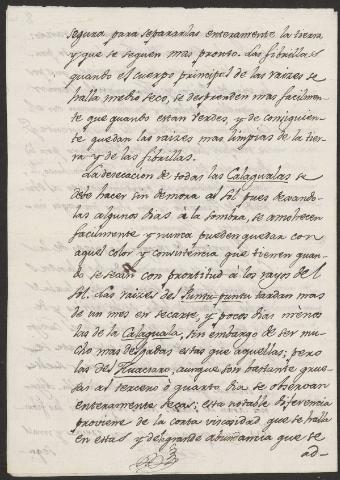 segura para separarlas enteramente la tierra
y que se sequen mas pronto. Las fibrillas
quando el cuerpo principal de las raizes se
halla medio seco, se desprenden mas facilmen-
te que quando estan verdes y de consiguien-
te quedan las raizes mas limpias de la tier-
ra y de las fibrillas.
La desecacion de todas las Calagualas se
debe hacer sin demora al Sol pues dexando-
las algunos dias a la sombra, se amohecen
facilmente y nunca pueden quedar con
aquel color y consistencia que tienen quan-
do se secan con prontitud à los rayos del
Sol. Las raizes del Puntu-puntu tardan mas
de un mes en secarse, y pocos dias menos
las de la Calaguala, sin embargo de ser mu-
cho mas delgadas estas que aquellas; pero
las del Huacsaro, aunque son bastante grue-
sas al tercero ó quarto dia se observan
enteramente secas; esta notable diferencia
proviene de la corta viscosidad que se halla
en estas y de la grande abundancia que se
ad-